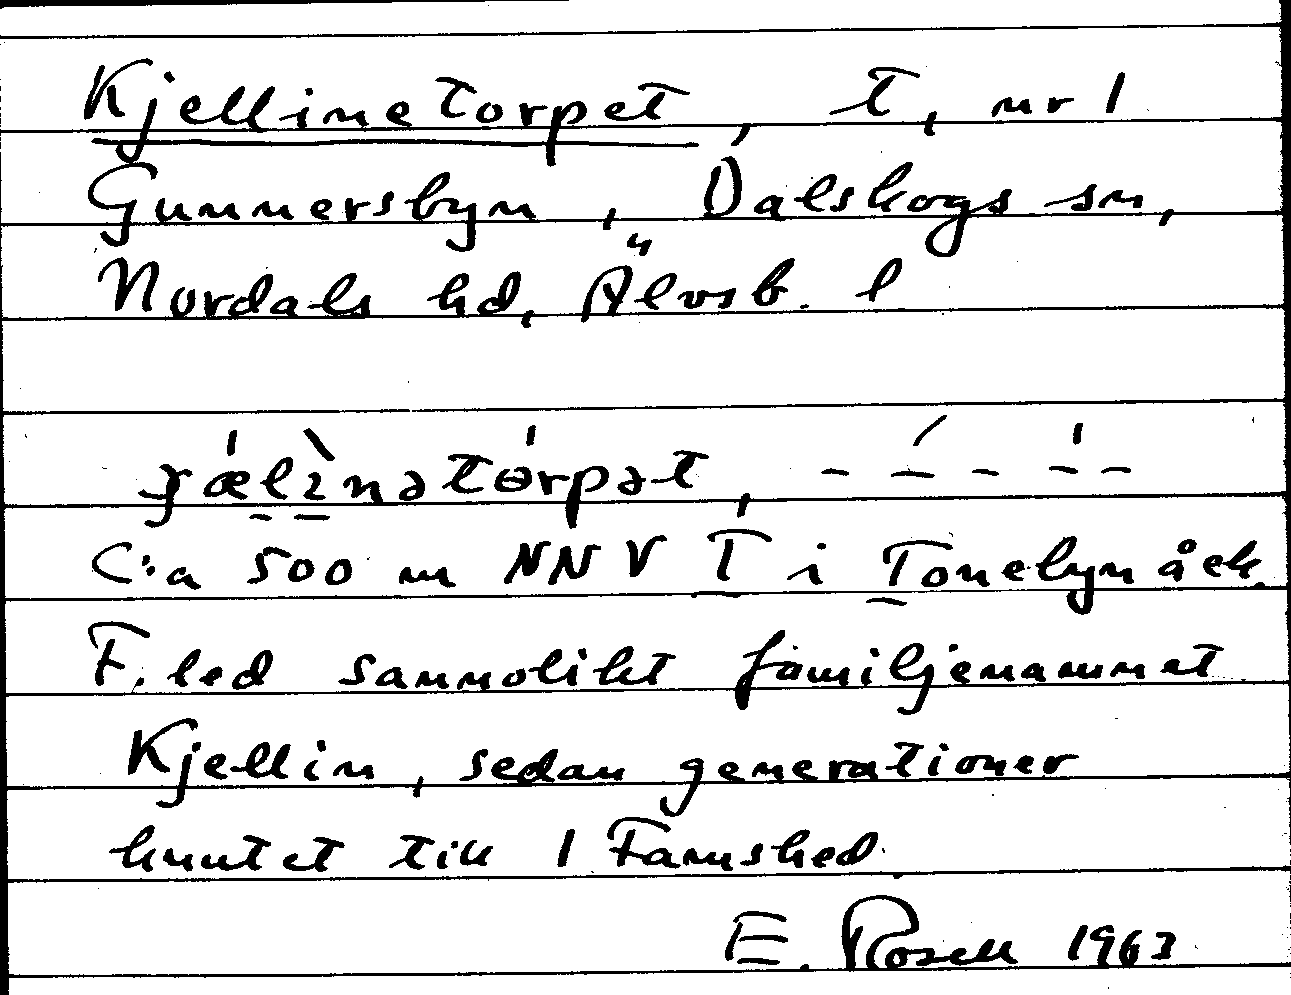 Kjellinetorpet, t, nr 1
Gunnersbyn, Dalskogs sn,
Nordals hd, Älvsb. l
C:a 500 m NNV T i Tonebyn å ek.
F. led sannolikt familjenamnet
Kjellin, sedan generationer
knutet till 1 Famshed.
E. Rosell 1963